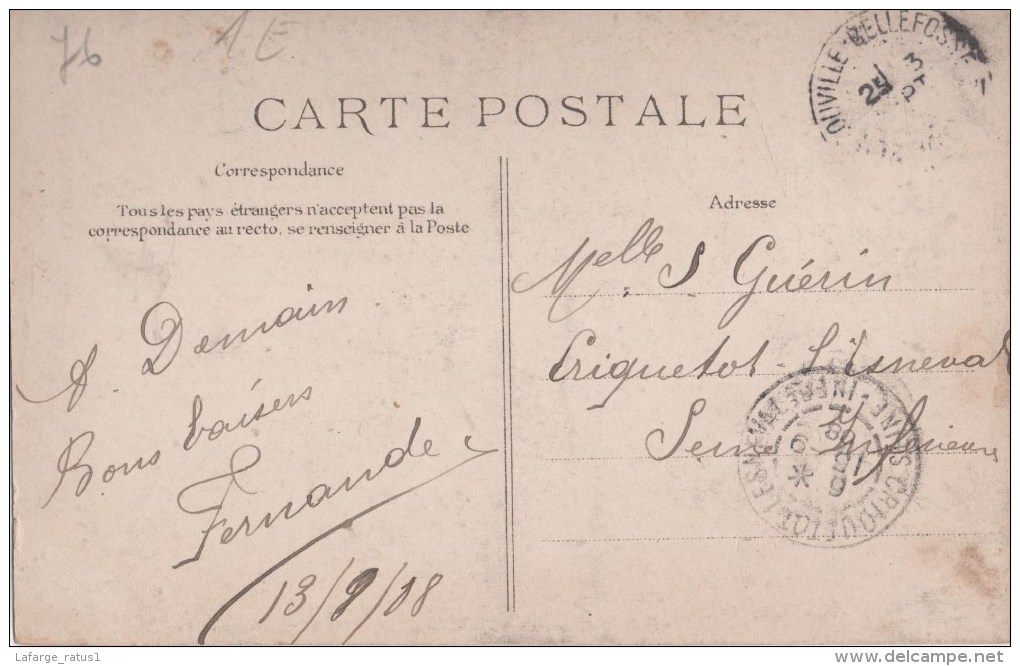 76
1 E
CARTE POSTALE
Correspondance
Tous les pays étrangers n'acceptent pas la
correspondance au recto, se renseigner à la Poste
A Demain
Bons baisers
Fernande
13/9/08
Adresse
Melle S Guérin
Criquetot L'Esneval
Seine Inférieure
BELLEFOSSE
25
SEINE-INFRE
Lafarge_ratus1
delcampe.net